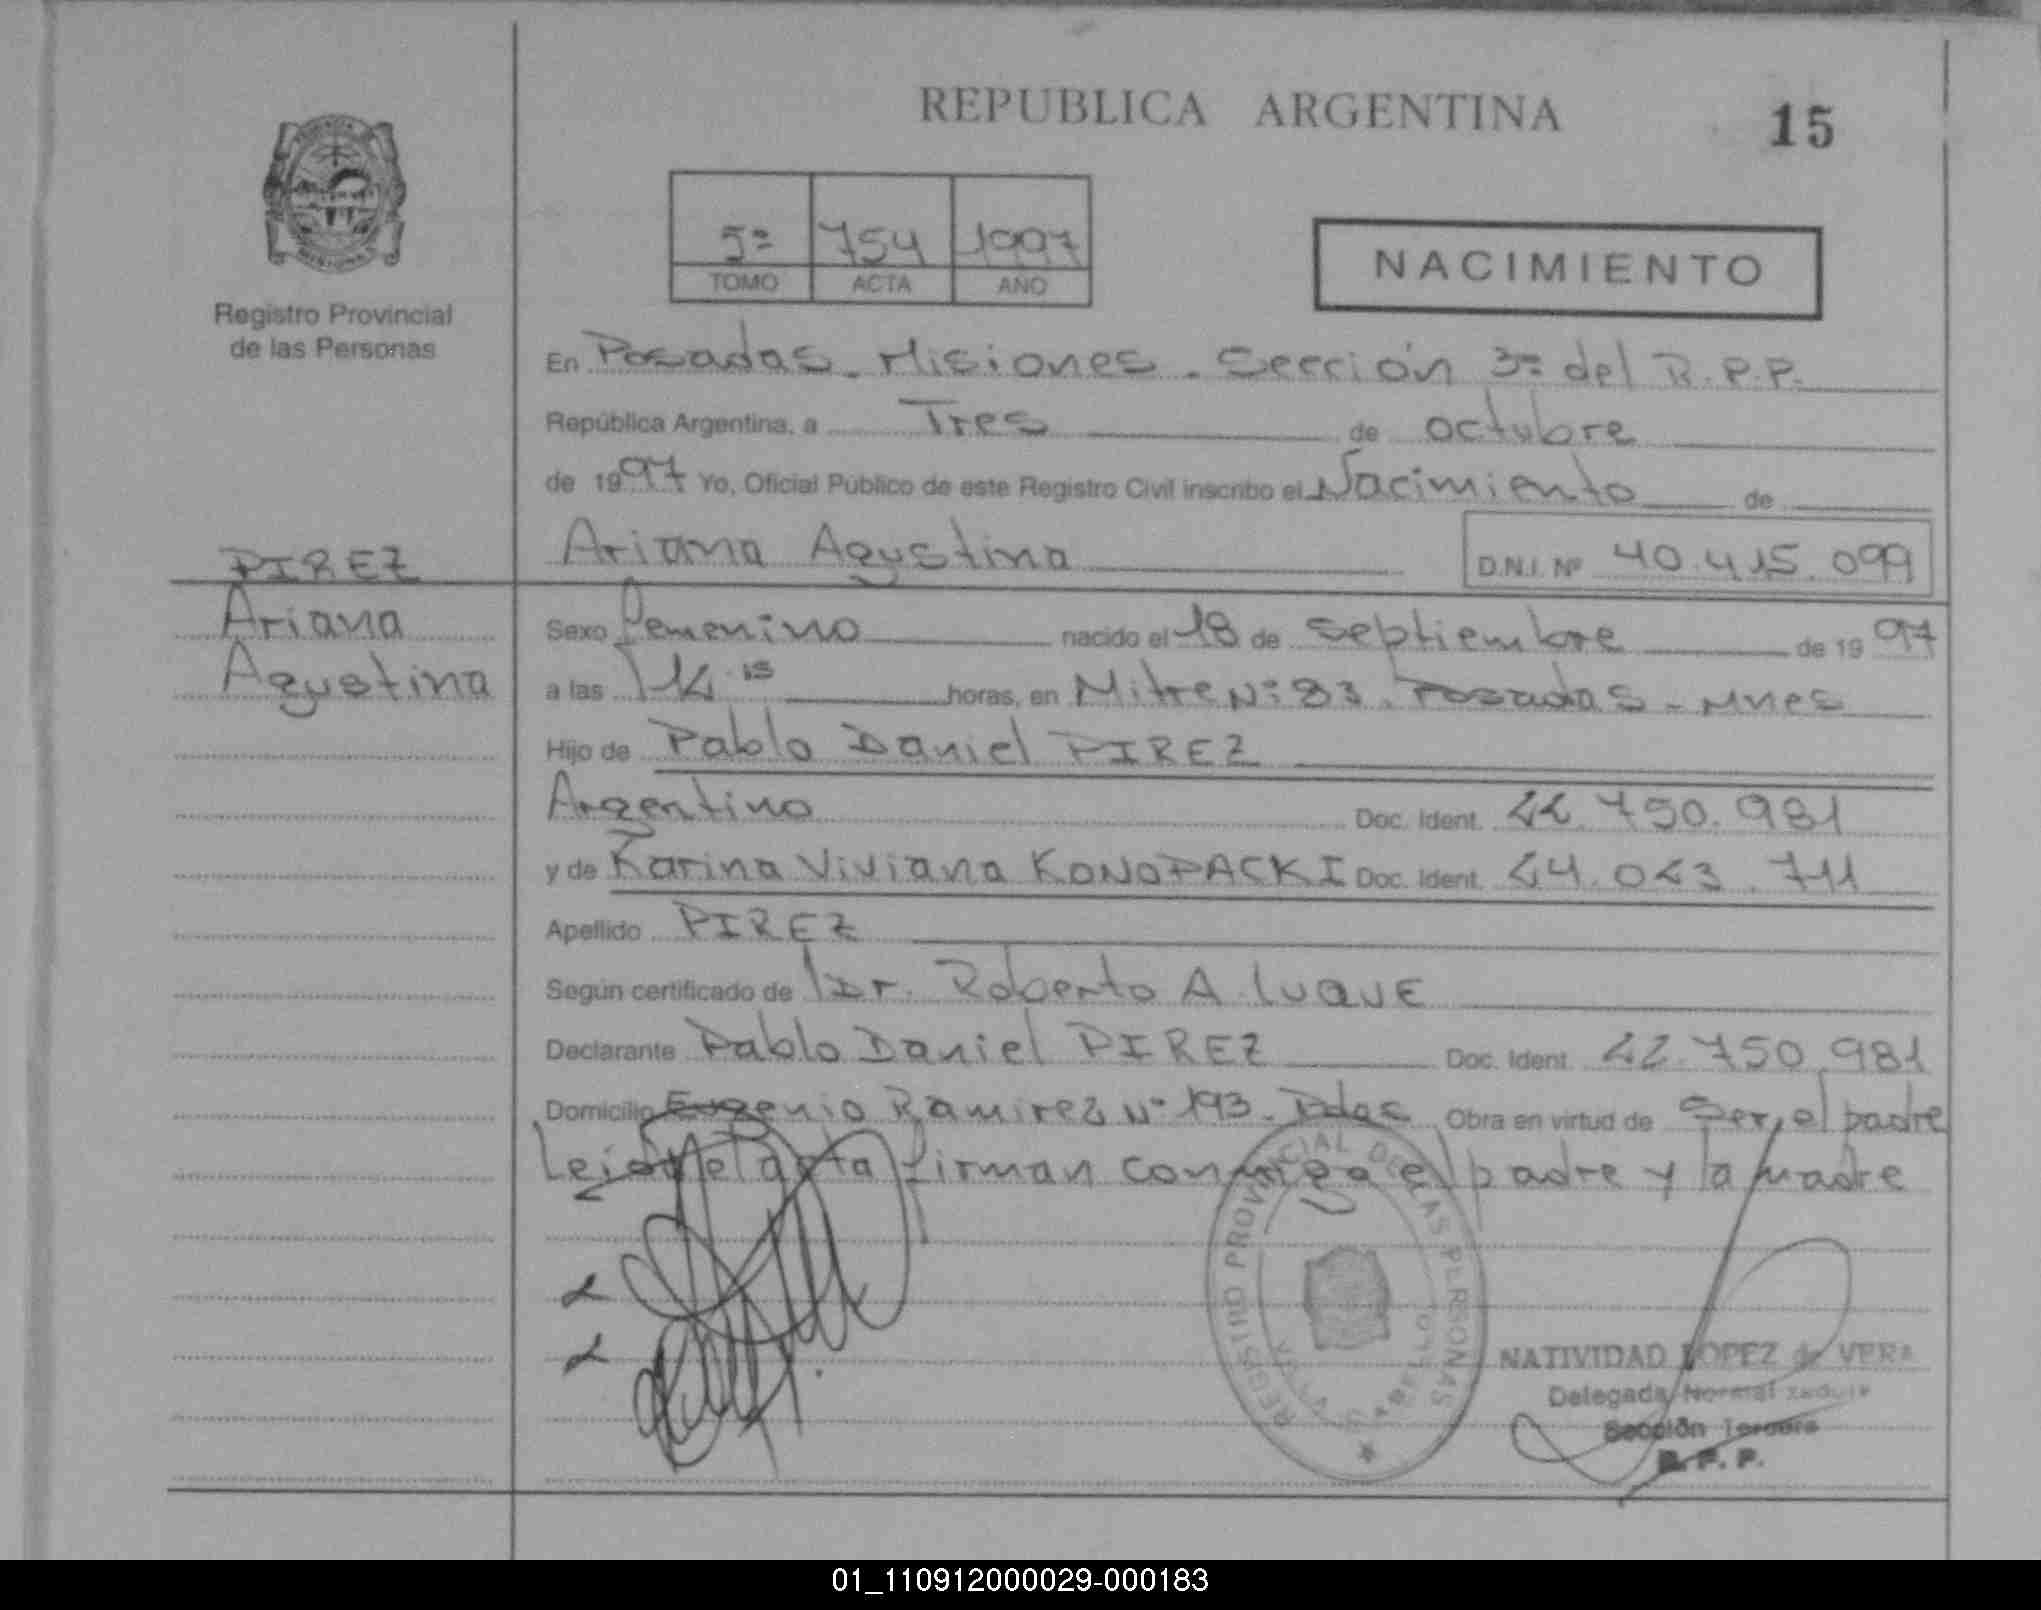 REPUBLICA ARGENTINA
15
5º 754 1997
TOMO ACTA AÑO
NACIMIENTO
Registro Provincial
de las Personas
En Posadas. Misiones. Sección 3ª del R.P.P.
República Argentina, a Tres de octubre
de 1997 Yo, Oficial Público de este Registro Civil inscribo el Nacimiento de
PIREZ
Ariana Agustina D.N.I. Nº 40.415.099
Ariana
Agustina
Sexo femenino nacido el 18 de septiembre de 1997
a las horas, en Mitre Nº 83. Posadas - Mnes
Hijo de Pablo Daniel PIREZ
Argentino Doc. Ident. 22.750.981
y de Karina Viviana KONOPACKI Doc. Ident. 24.023.711
Apellido PIREZ
Según certificado de Dr. Roberto A. luque
Declarante Pablo Daniel PIREZ Doc. Ident. 22.750.981
Domicilio Eugenio Ramirez Nº 193. Pdas Obra en virtud de Ser el padre
Leida el acta firman conmigo el padre y la madre
REGISTRO PROVINCIAL DE LAS PERSONAS
NATIVIDAD LOPEZ de VERA
Delegada Normal
Sección Tercera
R.P.P.
01_110912000029-000183